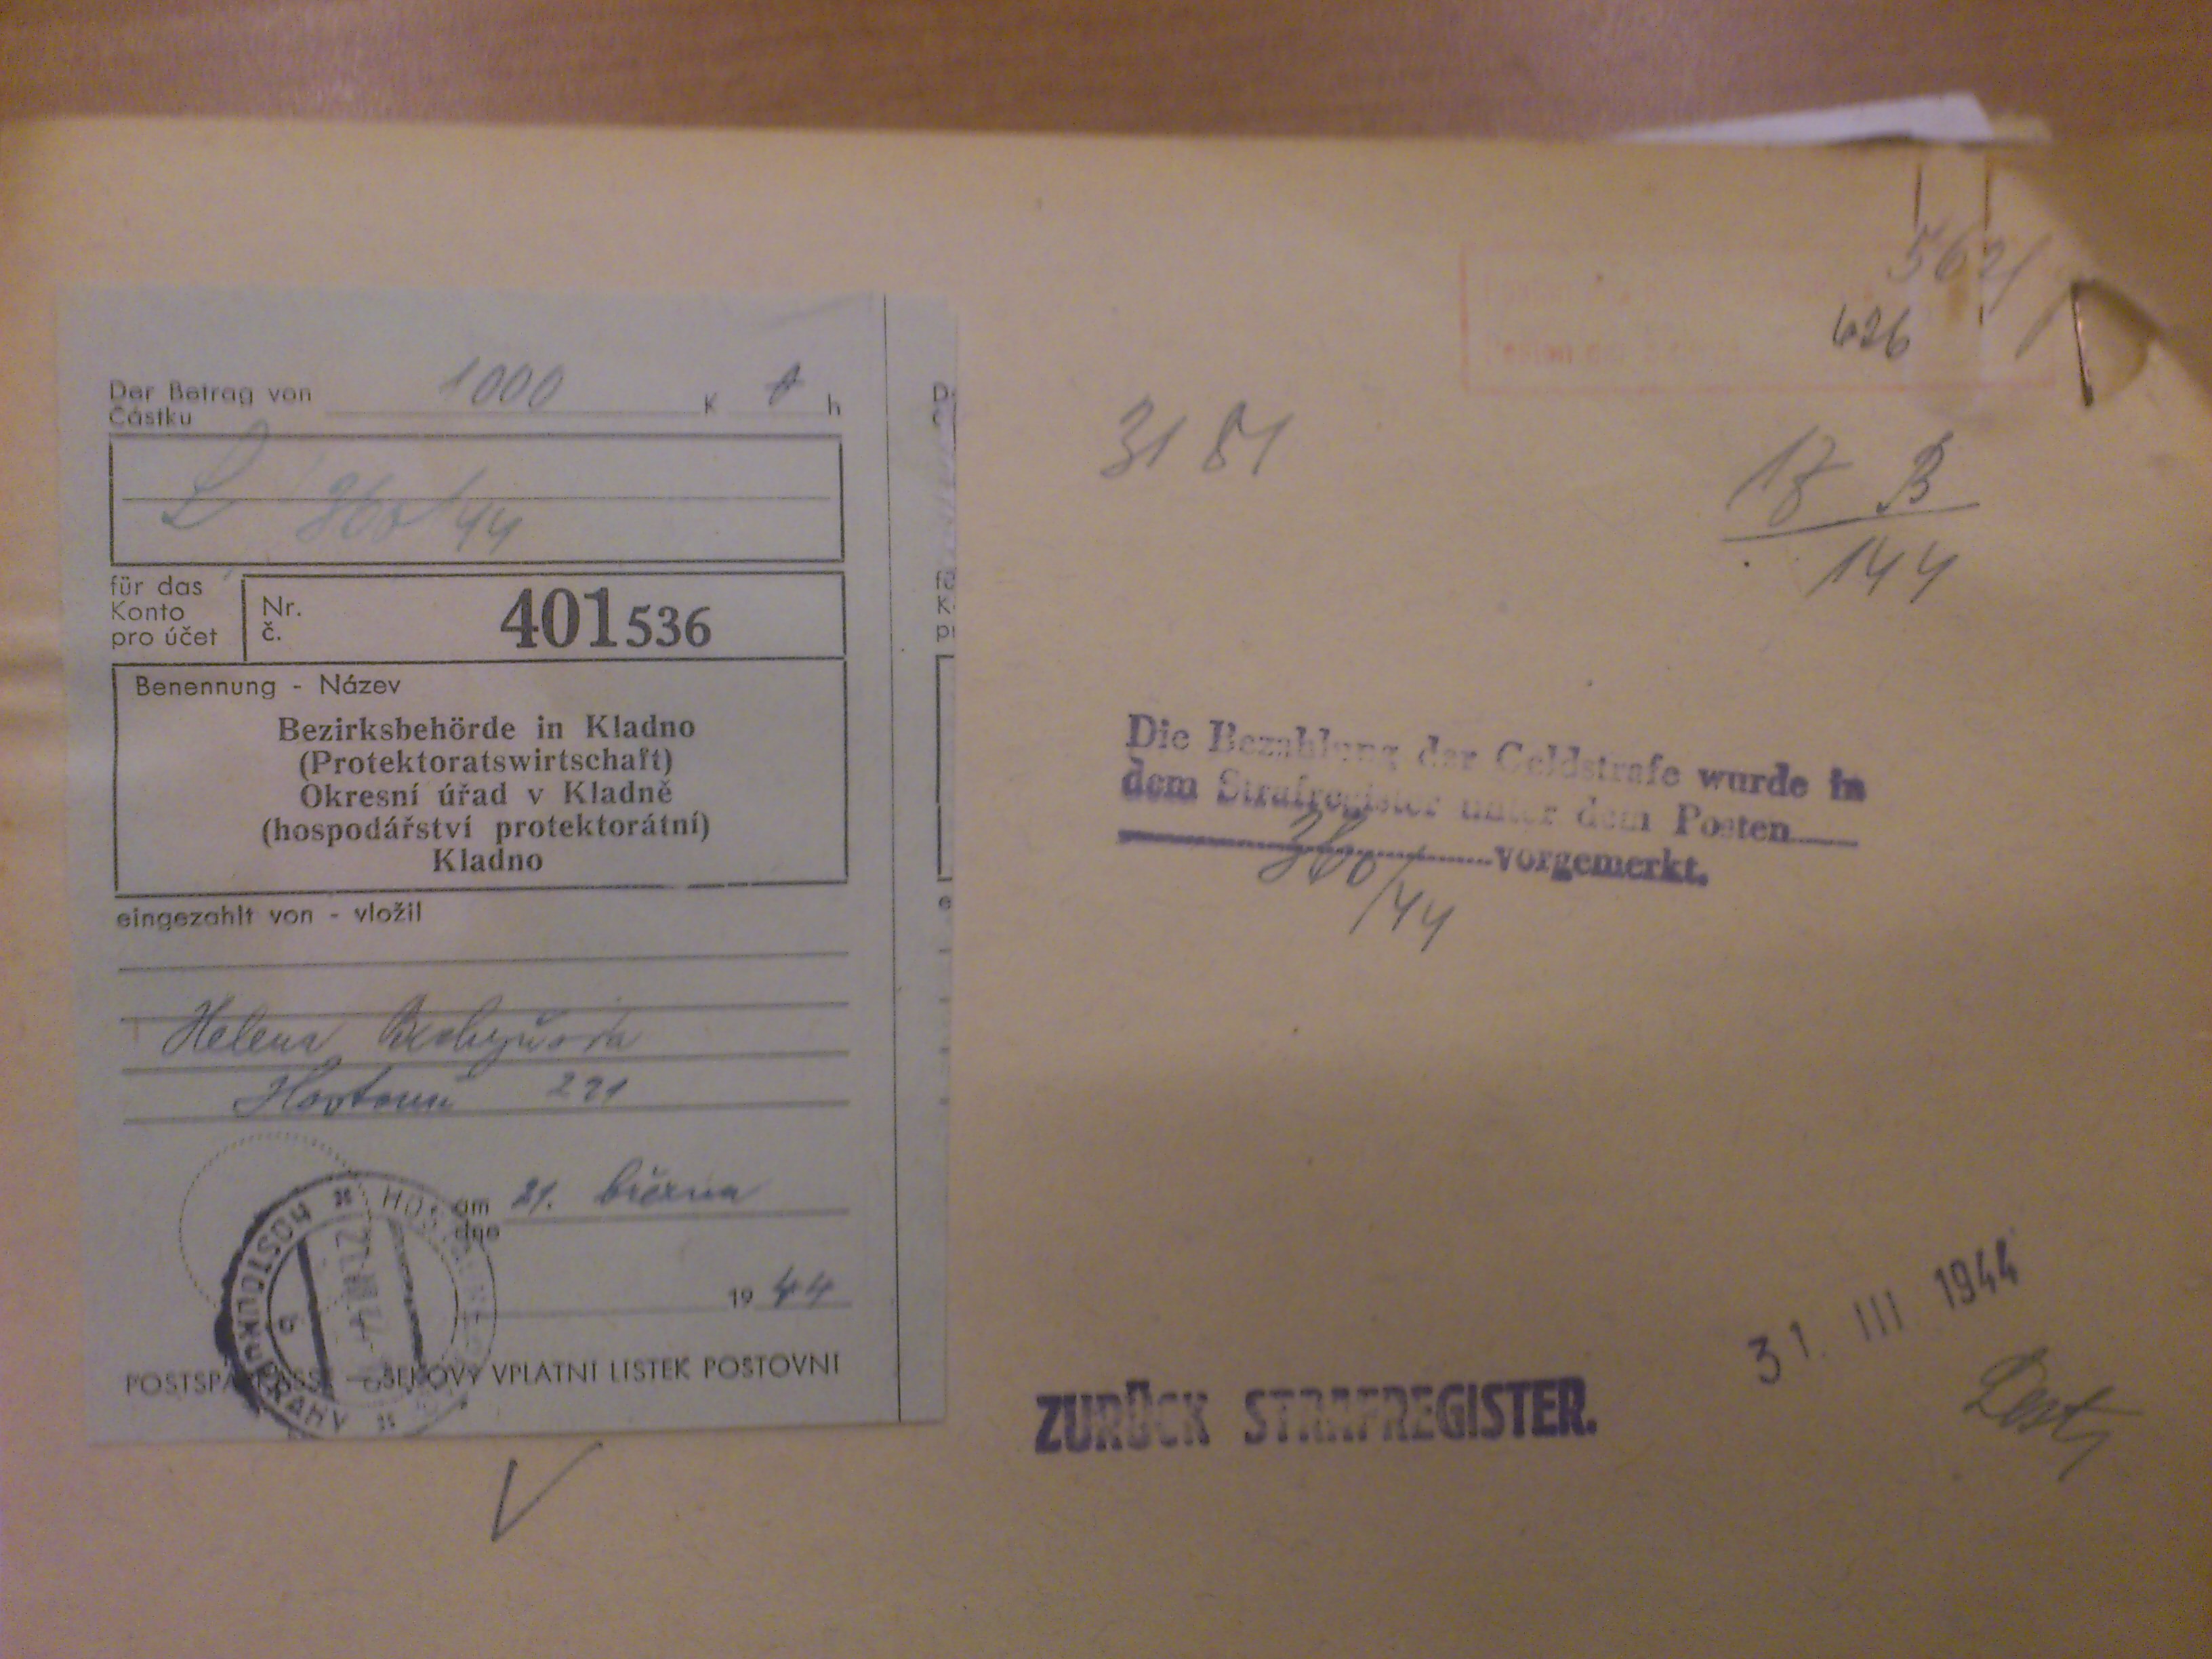 Der Betrag von 1000 K h
Částku
360/44
für das
Konto
pro účet
Nr.
č.
401536
Benennung - Název
Bezirksbehörde in Kladno
(Protektoratswirtschaft)
Okresní úřad v Kladně
(hospodářství protektorátní)
Kladno
eingezahlt von - vložil
Helena
221
am 21. března
dne
1944
ŠEKOVÝ VPLATNÍ LÍSTEK POŠTOVNÍ
562/
626
31 51
17 B
144
Die Bezahlung der Geldstrafe wurde in
dem Strafregister unter dem Posten
360/44 vorgemerkt.
31. III 1944
ZURÜCK STRAFREGISTER.